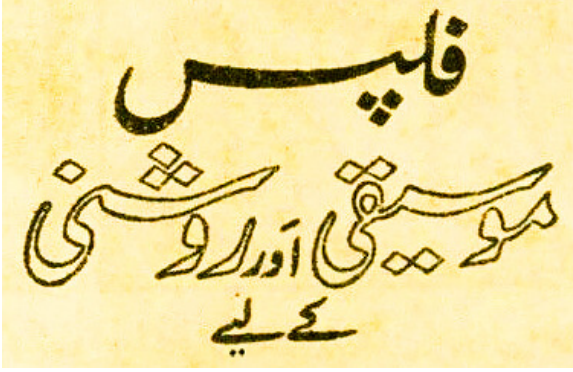 فلپس
موسیقی اور روشنی
کے لیے